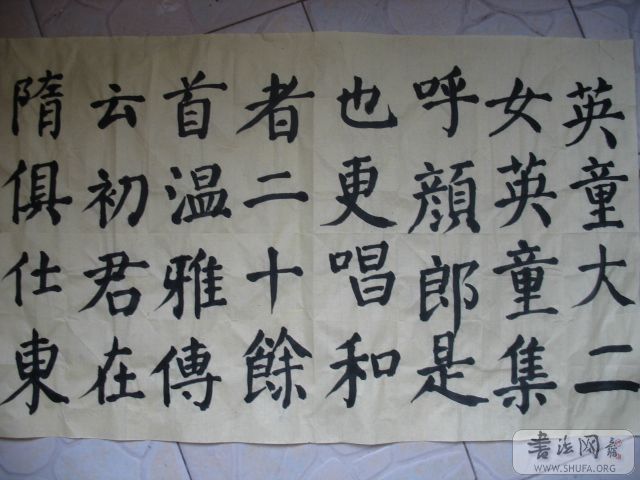 英童大二
女英童集
呼顔郎是
也更唱和
者二十餘
首温雅傳
云初君在
隋俱仕東
书法网
WWW.SHUFA.ORG